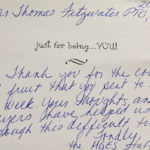 Thomas Fitzwater PTO,
just for being...YOU!
Thank you for the
fruit that you sent to
week. Your thoughts and
have helped us
this difficult
Fondly,
the HGES Staff